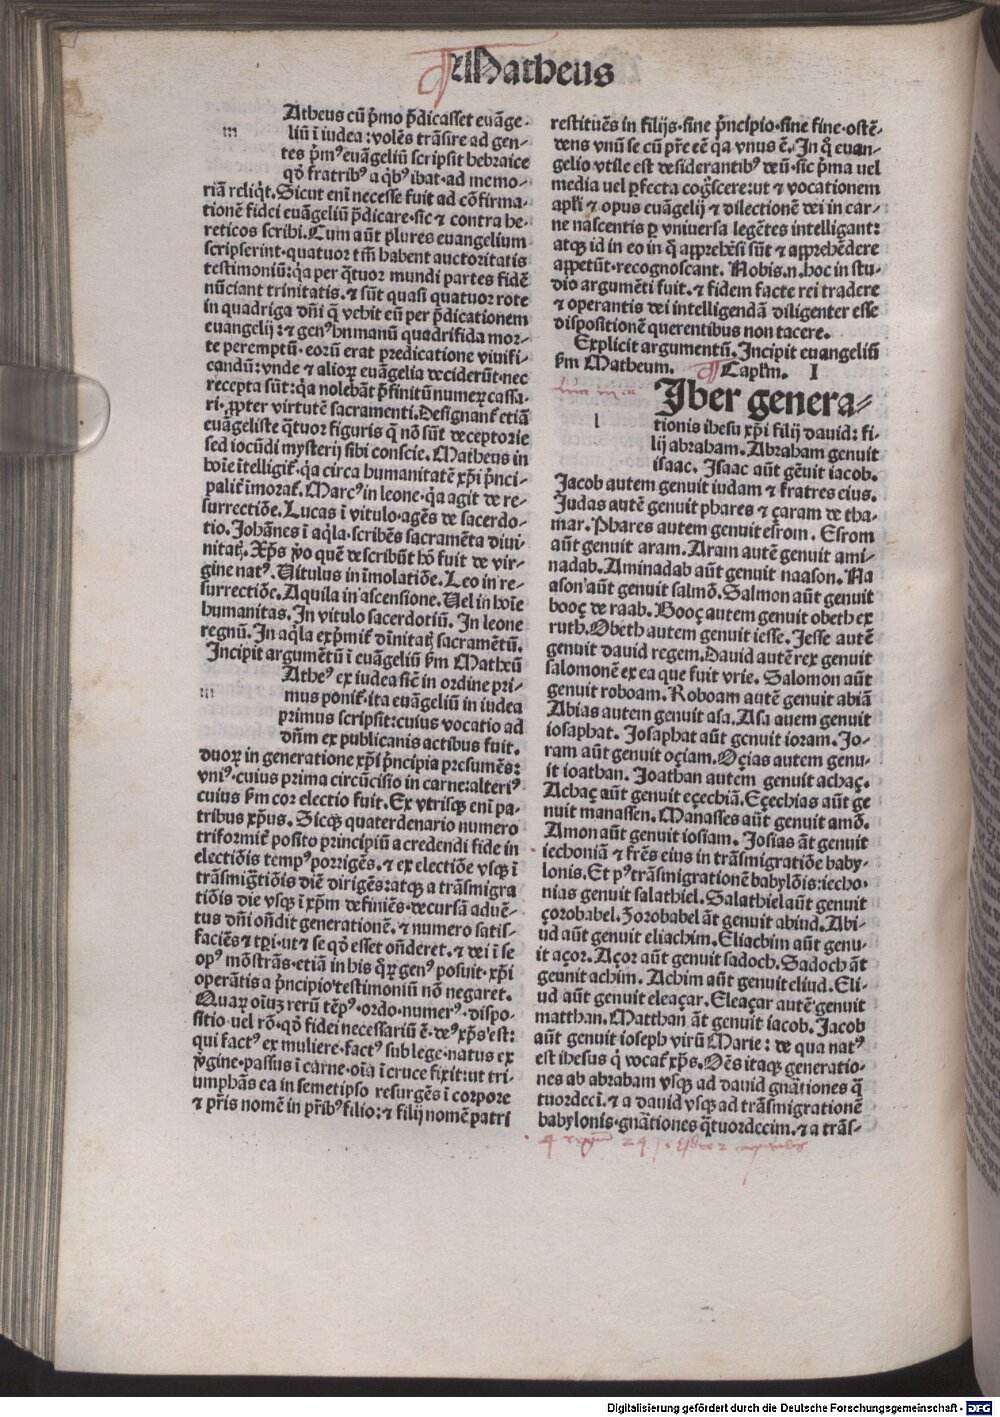 Matheus
Atheus cū p̄mo p̄dicasset euāge-
m
liū ī iudea: volēs trāsire ad gen-
tes p̄mꝰ euāgeliū scripsit hebraice
qd̛ fratribꝰ a qb̛ꝰ ibat·ad memo-
riā reliqt̛. Sicut eni necesse fuit ad cōfirma-
tionē fidei euāgeliū p̄dicare·sic ⁊ contra he-
reticos scribi. Cum aūt plures euangelium
scripserint·quatuor tm̄ habent auctoritatis
testimoniū: qa̛ per qt̄uor mundi partes fidē
nūciant trinitatis. ⁊ sūt quasi quatuor rote
in quadriga dn̄i q̄ vehit eū per p̄dicationem
euangelij: ⁊ genꝰ humanū quadrifida mor-
te peremptū·eorū erat predicatione viuifi-
candū: vnde ⁊ alioꝝ euangelia deciderūt·nec
recepta sūt: qa̛ nolebāt p̄finitū numeꝝ cassa-
ri·ꝓpter virtutē sacramenti. Designant̛ etiā
euāgeliste qt̄uor figuris q̄ nō sūt deceptorie
sed iocūdi mysterij sibi conscie. Matheus in
hoīe ītelligit̛·qa̛ circa humanitatē xp̄i p̄nci-
palit̛ īmorat̛. Marcꝰ in leone·qa̛ agit de re-
surrectiōe. Lucas ī vitulo·agēs de sacerdo-
tio. Johānes ī aqla̛·scribēs sacramēta diui-
nitatꝭ. Xp̄s ꝟo quē describūt hō fuit de vir-
gine natꝰ. Vitulus in īmolatiōe. Leo in re-
surrectiōe. Aquila in ascensione. Vel in hoīe
humanitas. In vitulo sacerdotiū. In leone
regnū. In aqla̛ exp̄mit̛ diuinitatꝭ sacramētū.
Incipit argumētū ī euāgeliū ẜm Matheū
Atheꝰ ex iudea sic̄ in ordine pri-
m
mus ponit̛·ita euāgeliū in iudea
primus scripsit: cuius vocatio ad
dn̄m ex publicanis actibus fuit.
duoꝝ in generatione xp̄i p̄ncipia presumēs:
vniꝰ·cuius prima circūcisio in carne: alteriꝰ
cuius ẜm cor electio fuit. Ex vtrisqꝫ eni pa-
tribus xp̄us. Sicqꝫ quaterdenario numero
triformit̛ posito principiū a credendi fide in
electiōis tempꝰ porrigēs. ⁊ ex electiōe vsqꝫ ī
trāsmigr̄tiōis diē dirigēs: atqꝫ a trāsmigra
tiōis die vsqꝫ ī xp̄m definiēs·decursā aduē-
tus dn̄i on̄dit generationē. ⁊ numero satis-
faciēs ⁊ tp̄i·ut ⁊ se qd̛ esset on̄deret. ⁊ dei ī se
opꝰ mōstrās·etiā in his qr̄ꝝ genꝰ posuit·xp̄i
operātis a p̄ncipio testimoniū nō negaret.
Quaꝝ oīuꝫ rerū tēpꝰ·ordo·numerꝰ·dispo-
sitio·uel rō·qd̛ fidei necessariū ē·deꝰ xp̄s est:
qui factꝰ ex muliere·factꝰ sub lege·natus ex
ꝟgine·passus ī carne·oīa ī cruce fixit: ut tri-
umphās ea in semetipso resurgēs ī corpore
⁊ pr̄is nomē in pr̄ibꝰ filio: ⁊ filij nomē patri
restituēs in filijs·sine p̄ncipio·sine fine·ostē-
dens vnū se cū pr̄e eē qa̛ vnus ē. In q̛ euan-
gelio vtile est desiderantibꝰ deū·sic p̄ma uel
media uel ꝑfecta cogsc̛ere: ut ⁊ vocationem
apl̄i ⁊ opus euāgelij ⁊ dilectionē dei in car-
ne nascentis ꝑ vniuersa legētes intelligant:
atqꝫ id in eo in q̛ apprehēsi sūt ⁊ apprehēdere
appetūt·recognoscant. Nobis.n.hoc in stu-
dio argumēti fuit. ⁊ fidem facte rei tradere
⁊ operantis dei intelligendā diligenter esse
dispositionē querentibus non tacere.
Explicit argumentū. Incipit euangeliū
ẜm Matheum. Caplm̄. I
Iber genera-
l
tionis ihesu xp̄i filij dauid: fi-
lij abraham. Abraham genuit
isaac. Isaac aūt gēuit iacob.
Jacob autem genuit iudam ⁊ fratres eius.
Judas autē genuit phares ⁊ çaram de tha-
mar. Phares autem genuit esrom. Esrom
aūt genuit aram. Aram autē genuit ami-
nadab. Aminadab aūt genuit naason. Na
ason aūt genuit salmō. Salmon aūt genuit
booç de raab. Booç autem genuit obeth ex
ruth. Obeth autem genuit iesse. Jesse autē
genuit dauid regem. Dauid autē rex genuit
salomonē ex ea que fuit vrie. Salomon aūt
genuit roboam. Roboam autē genuit abiā
Abias autem genuit asa. Asa auem genuit
iosaphat. Josaphat aūt genuit ioram. Jo-
ram aūt genuit oçiam. Oçias autem genu-
it ioathan. Joathan autem genuit achaç.
Achaç aūt genuit eçechiā. Eçechias aūt ge
nuit manassen. Manasses aūt genuit amō.
Amon aūt genuit iosiam. Josias āt genuit
iechoniā ⁊ fr̄es eius in trāsmigratiōe baby-
lonis. Et pꝰ trāsmigrationē babylōis: iecho-
nias genuit salathiel. Salathiel aūt genuit
çorobabel. Zorobabel āt genuit abiud. Abi-
ud aūt genuit eliachim. Eliachim aūt genu-
it açor. Açor aūt genuit sadoch. Sadoch āt
geunit achim. Achim aūt genuit eliud. Eli-
ud aūt genuit eleaçar. Eleaçar autē genuit
matthan. Matthan āt genuit iacob. Jacob
aūt genuit ioseph virū Marie: de qua natꝰ
est ihesus q̛ vocat̛ xp̄s. Oēs itaqꝫ generatio-
nes ab abraham vsqꝫ ad dauid gnātiones q̄
tuordecī. ⁊ a dauid vsqꝫ ad trāsmigrationē
babylonis·gnāiones qt̄uordecim. ⁊ a trās-
Digitalisierung gefördert durch die Deutsche Forschungsgemeinschaft - DFG